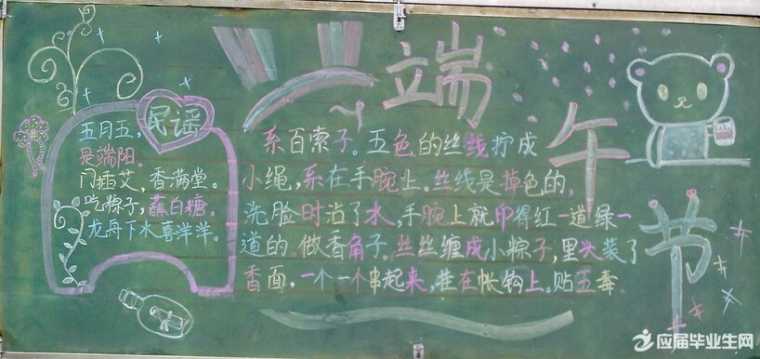 端午节
民谣
五月五,
是端阳。
门插艾,香满堂。
吃粽子,蘸白糖。
龙舟下水喜洋洋。
系百索子。五色的丝线拧成
小绳,系在手腕上。丝线是掉色的,
洗脸时沾了水,手腕上就印得红一道绿一
道的。做香角子。丝丝缠成小粽子,里头装了
香面,一个一个串起来,挂在帐钩上。贴五毒
应届毕业生网